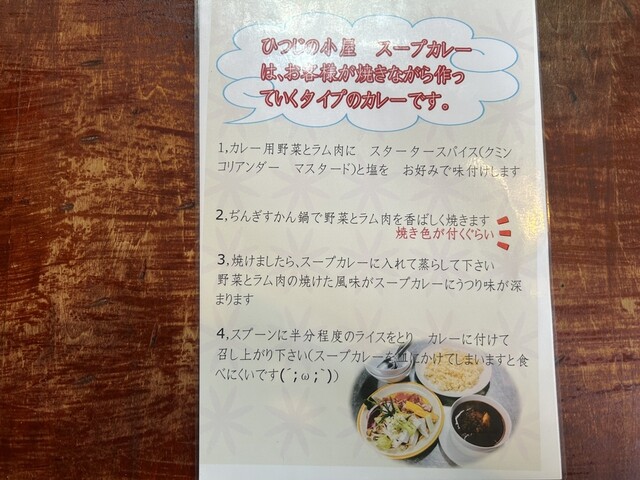 ひつじの小屋　スープカレー
は、お客様が焼きながら作っ
ていくタイプのカレーです。
1,カレー用野菜とラム肉に　スタータースパイス(クミン
コリアンダー　マスタード)と塩を　お好みで味付けします
2,ぢんぎすかん鍋で野菜とラム肉を香ばしく焼きます
焼き色が付くぐらい
3,焼けましたら、スープカレーに入れて蒸らして下さい
野菜とラム肉の焼けた風味がスープカレーにうつり味が深
まります
4,スプーンに半分程度のライスをとり　カレーに付けて
召し上がり下さい(スープカレーを皿にかけてしまいますと食
べにくいです(´;ω;`))